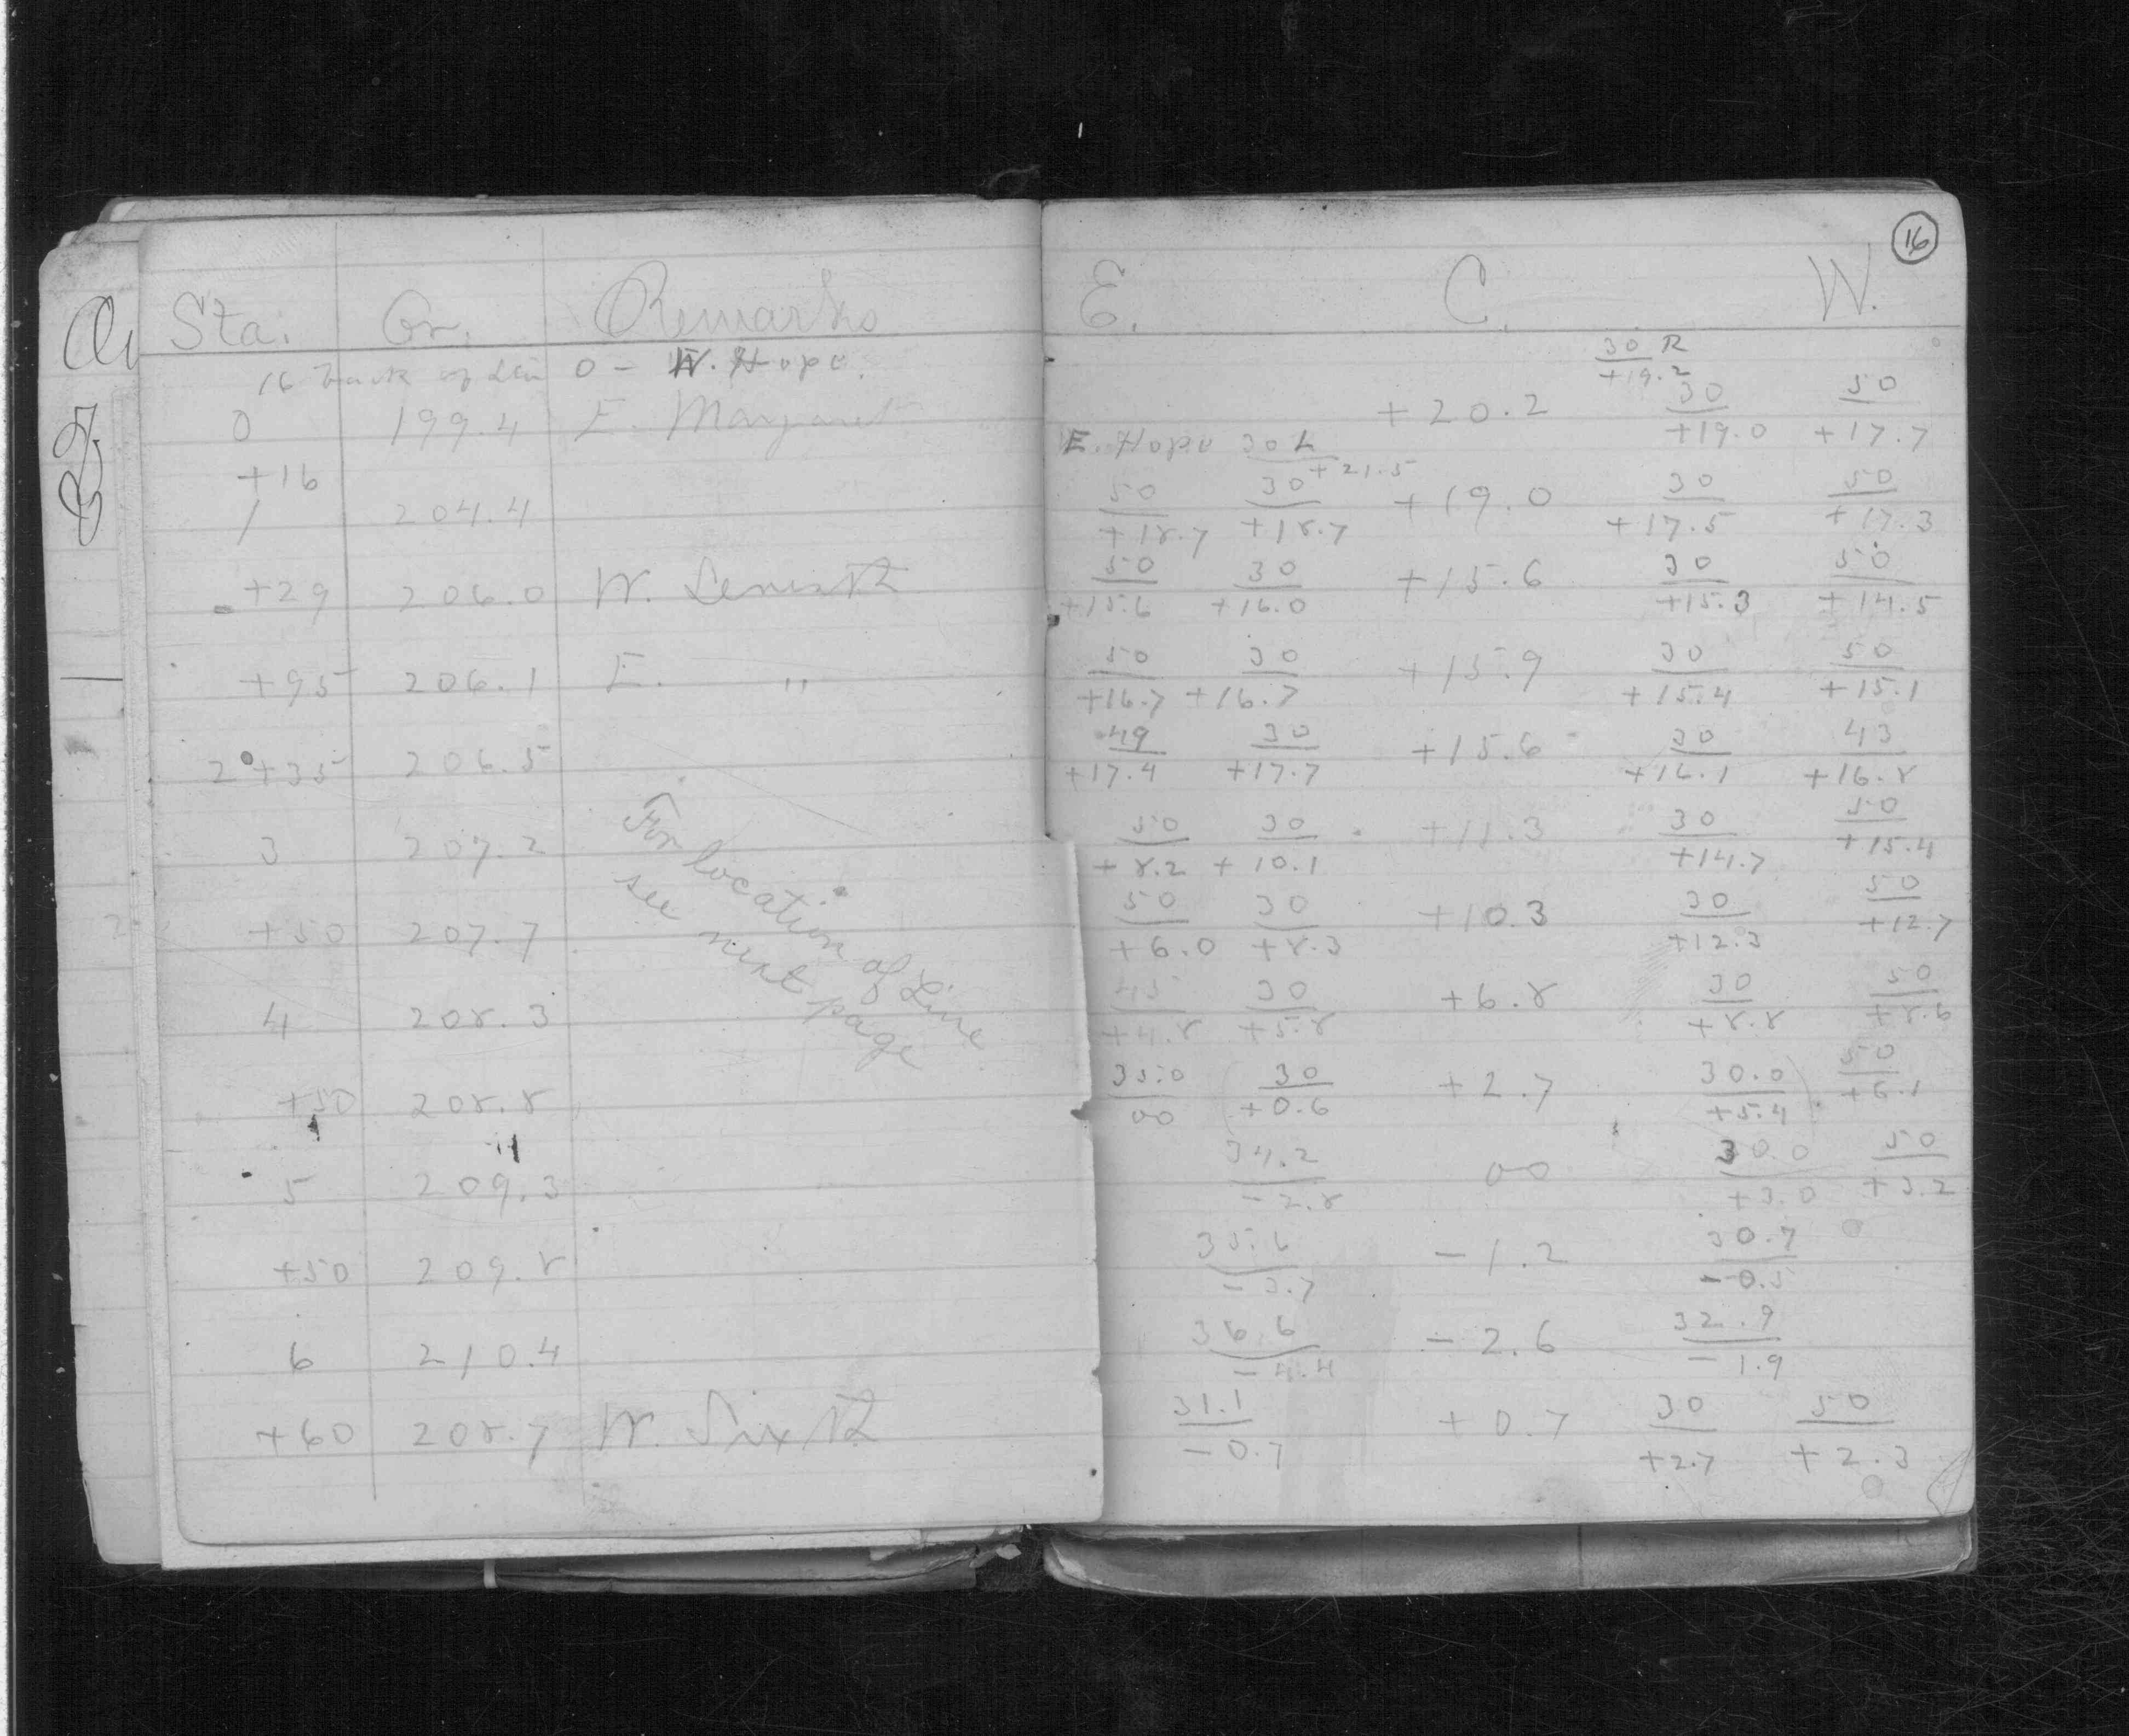 16
Sta. Gr. Remarks E. C. W.
16 back of Sta 0 - W. Hope. 30 R / +19.2
0 199.4 E. Margaret +20.2 30/+19.0 50/+17.7
+16 E. Hope 30 L / +21.5
1 204.4 50/+18.7 30/+18.7 +19.0 30/+17.5 50/+17.3
+29 206.0 W. 50/+15.6 30/+16.0 +15.6 30/+15.3 50/+14.5
+95 206.1 E. " 50/+16.7 30/+16.7 +15.9 30/+15.4 50/+15.1
2+35 206.5 49/+17.4 30/+17.7 +15.6 30/+16.1 43/+16.8
3 207.2 50/+8.2 30/+10.1 +11.3 30/+14.7 50/+15.4
For location of Line
see next page
+50 207.7 50/+6.0 30/+8.3 +10.3 30/+12.3 50/+12.7
4 208.3 45/+4.8 30/+5.8 +6.8 30/+8.8 50/+8.6
+50 208.8 35.0/00 (30/+0.6 +2.7 30.0/+5.4) 50/+6.1
5 209.3 34.2/-2.8 00 30.0/+3.0 50/+3.2
+50 209.8 35.6/-3.7 -1.2 30.7/-0.5
6 210.4 36.6/-4.4 -2.6 32.9/-1.9
+60 208.7 W. Sixth 31.1/-0.7 +0.7 30/+2.7 50/+2.3